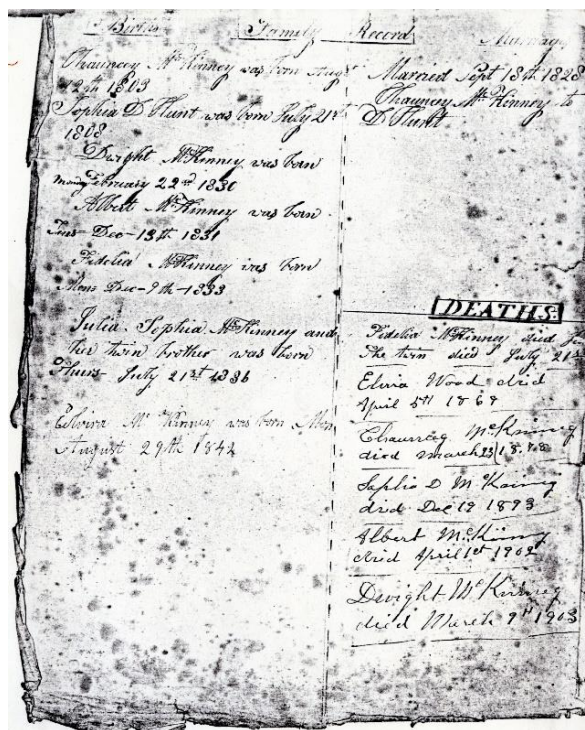 Births
Family Record
Marriage
Chauncey McKinney was born Augst
12th 1803
Sophia D Hunt was born July 21st
1808
Dwight McKinney was born
Mon February 22nd 1830
Albert McKinney was born
Tues Dec 13th 1831
Fidelia McKinney was born
Mon Dec 9th 1833
Julia Sophia McKinney and
her twin brother was born
Thurs July 21st 1836
Elvira McKinney was born Mon
August 29th 1842
Married Sept 18th 1828
Chauncey McKinney to
D Hunt
DEATHS.
Fidelia McKinney died
The twin died July 21st
Elvira Wood died
April 5th 1868
Chauncey McKinney
died March 23
Sophia D McKinney
died Dec 19 1893
Albert McKinney
died April 1st
Dwight McKinney
died March 9th 1903